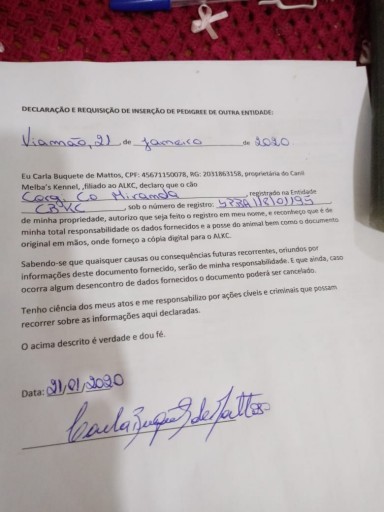 DECLARAÇÃO E REQUISIÇÃO DE INSERÇÃO DE PEDIGREE DE OUTRA ENTIDADE:
Viamão, 21 de Janeiro de 2020
Eu Carla Buquete de Mattos, CPF: 45671150078, RG: 2031863158, proprietária do Canil
Melba's Kennel, ,filiado ao ALKC, declaro que o cão
Co Miranda , registrado na Entidade
CBKC , sob o número de registro:
de minha propriedade, autorizo que seja feito o registro em meu nome, e reconheço que é de
minha total responsabilidade os dados fornecidos e a posse do animal bem como o documento
original em mãos, onde forneço a cópia digital para o ALKC.
Sabendo-se que quaisquer causas ou consequências futuras recorrentes, oriundos por
informações deste documento fornecido, serão de minha responsabilidade. E que ainda, caso
ocorra algum desencontro de dados fornecidos o documento poderá ser cancelado.
Tenho ciência dos meus atos e me responsabilizo por ações cíveis e criminais que possam
recorrer sobre as informações aqui declaradas.
O acima descrito é verdade e dou fé.
Data: 21/01/2020
Carla Buquete de Mattos